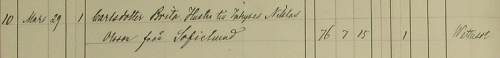 10 Mars 29 1 Carlsdotter Brita, Hustru till Inhyses Niklas
Olsson från Sofielund 76 7 15 1